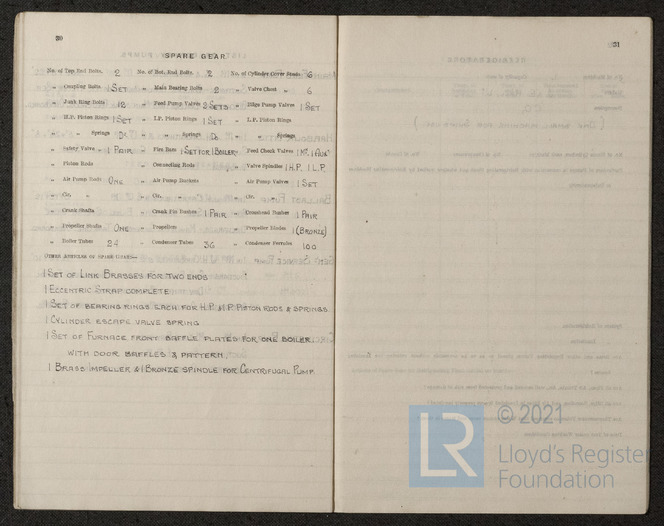 30
SPARE GEAR
No. of Top End Bolts. 2 No. of Bot. End Bolts. 2 No. of Cylinder Cover Studs 6
" Coupling Bolts 1 SET " Main Bearing Bolts 2 " Valve Chest " 6
" Junk Ring Bolts 12 " Feed Pump Valves 2 SETS " Bilge Pump Valves 1 SET
" H.P. Piston Rings 1 SET " I.P. Piston Rings 1 SET " L.P. Piston Rings
" " Springs Do " " Springs Do " " Springs
" Safety Valve " 1 PAIR " Fire Bars 1 SET FOR 1 BOILER " Feed Check Valves
" Piston Rods " Connecting Rods " Valve Spindles 1 H.P. 1 L.P.
" Air Pump Rods ONE " Air Pump Buckets " Air Pump Valves 1 SET
" Cir. " " Cir. " " Cir. "
" Crank Shafts " Crank Pin Bushes 1 PAIR " Crosshead Bushes 1 PAIR
" Propeller Shafts ONE " Propellers " Propeller Blades 1 (BRONZE)
" Boiler Tubes 24 " Condenser Tubes 36 " Condenser Ferrules 100
OTHER ARTICLES OF SPARE GEAR:—
1 SET OF LINK BRASSES FOR TWO ENDS
1 ECCENTRIC STRAP COMPLETE
1 SET OF BEARING RINGS EACH FOR H.P. & I.P. PISTON RODS & SPRINGS
1 CYLINDER ESCAPE VALVE SPRING
1 SET OF FURNACE FRONT BAFFLE PLATES FOR ONE BOILER.
WITH DOOR BAFFLES & PATTERN.
1 BRASS IMPELLER & 1 BRONZE SPINDLE FOR CENTRIFUGAL PUMP.
31
LR
© 2021
Lloyd's Register
Foundation